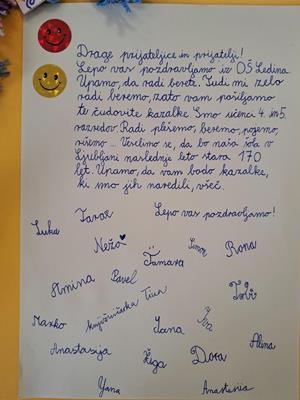 Drage prijateljice in prijatelji!
Lepo vas pozdravljamo iz OŠ Ledina.
Upamo, da radi berete. Tudi mi zelo
radi beremo, zato vam pošiljamo
te čudovite kazalke. Smo učenci 4. in 5.
razredov. Radi plešemo, beremo, pojemo,
rišemo ... Veselimo se, da bo naša šola v
Ljubljani naslednje leto stara 170
let. Upamo, da vam bodo kazalke,
ki smo jih naredili, všeč.
Lepo vas pozdravljamo!
Luka
Nežo
Tamara
Rona
Amina Pavel
Tobi
Marko knjižničarka Tina
Jana Iva
Anastasija Žiga Dora Alena
Yana Anastasia